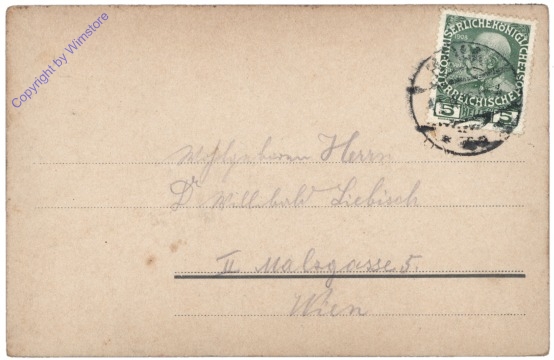 Copyright by Wimstore
KAISERLICHE KÖNIGLICHE ÖSTERREICHISCHE
1908
5 5
Wohlgeboren Herrn
Dr Willibald Liebisch
II Malzgasse 5.
Wien